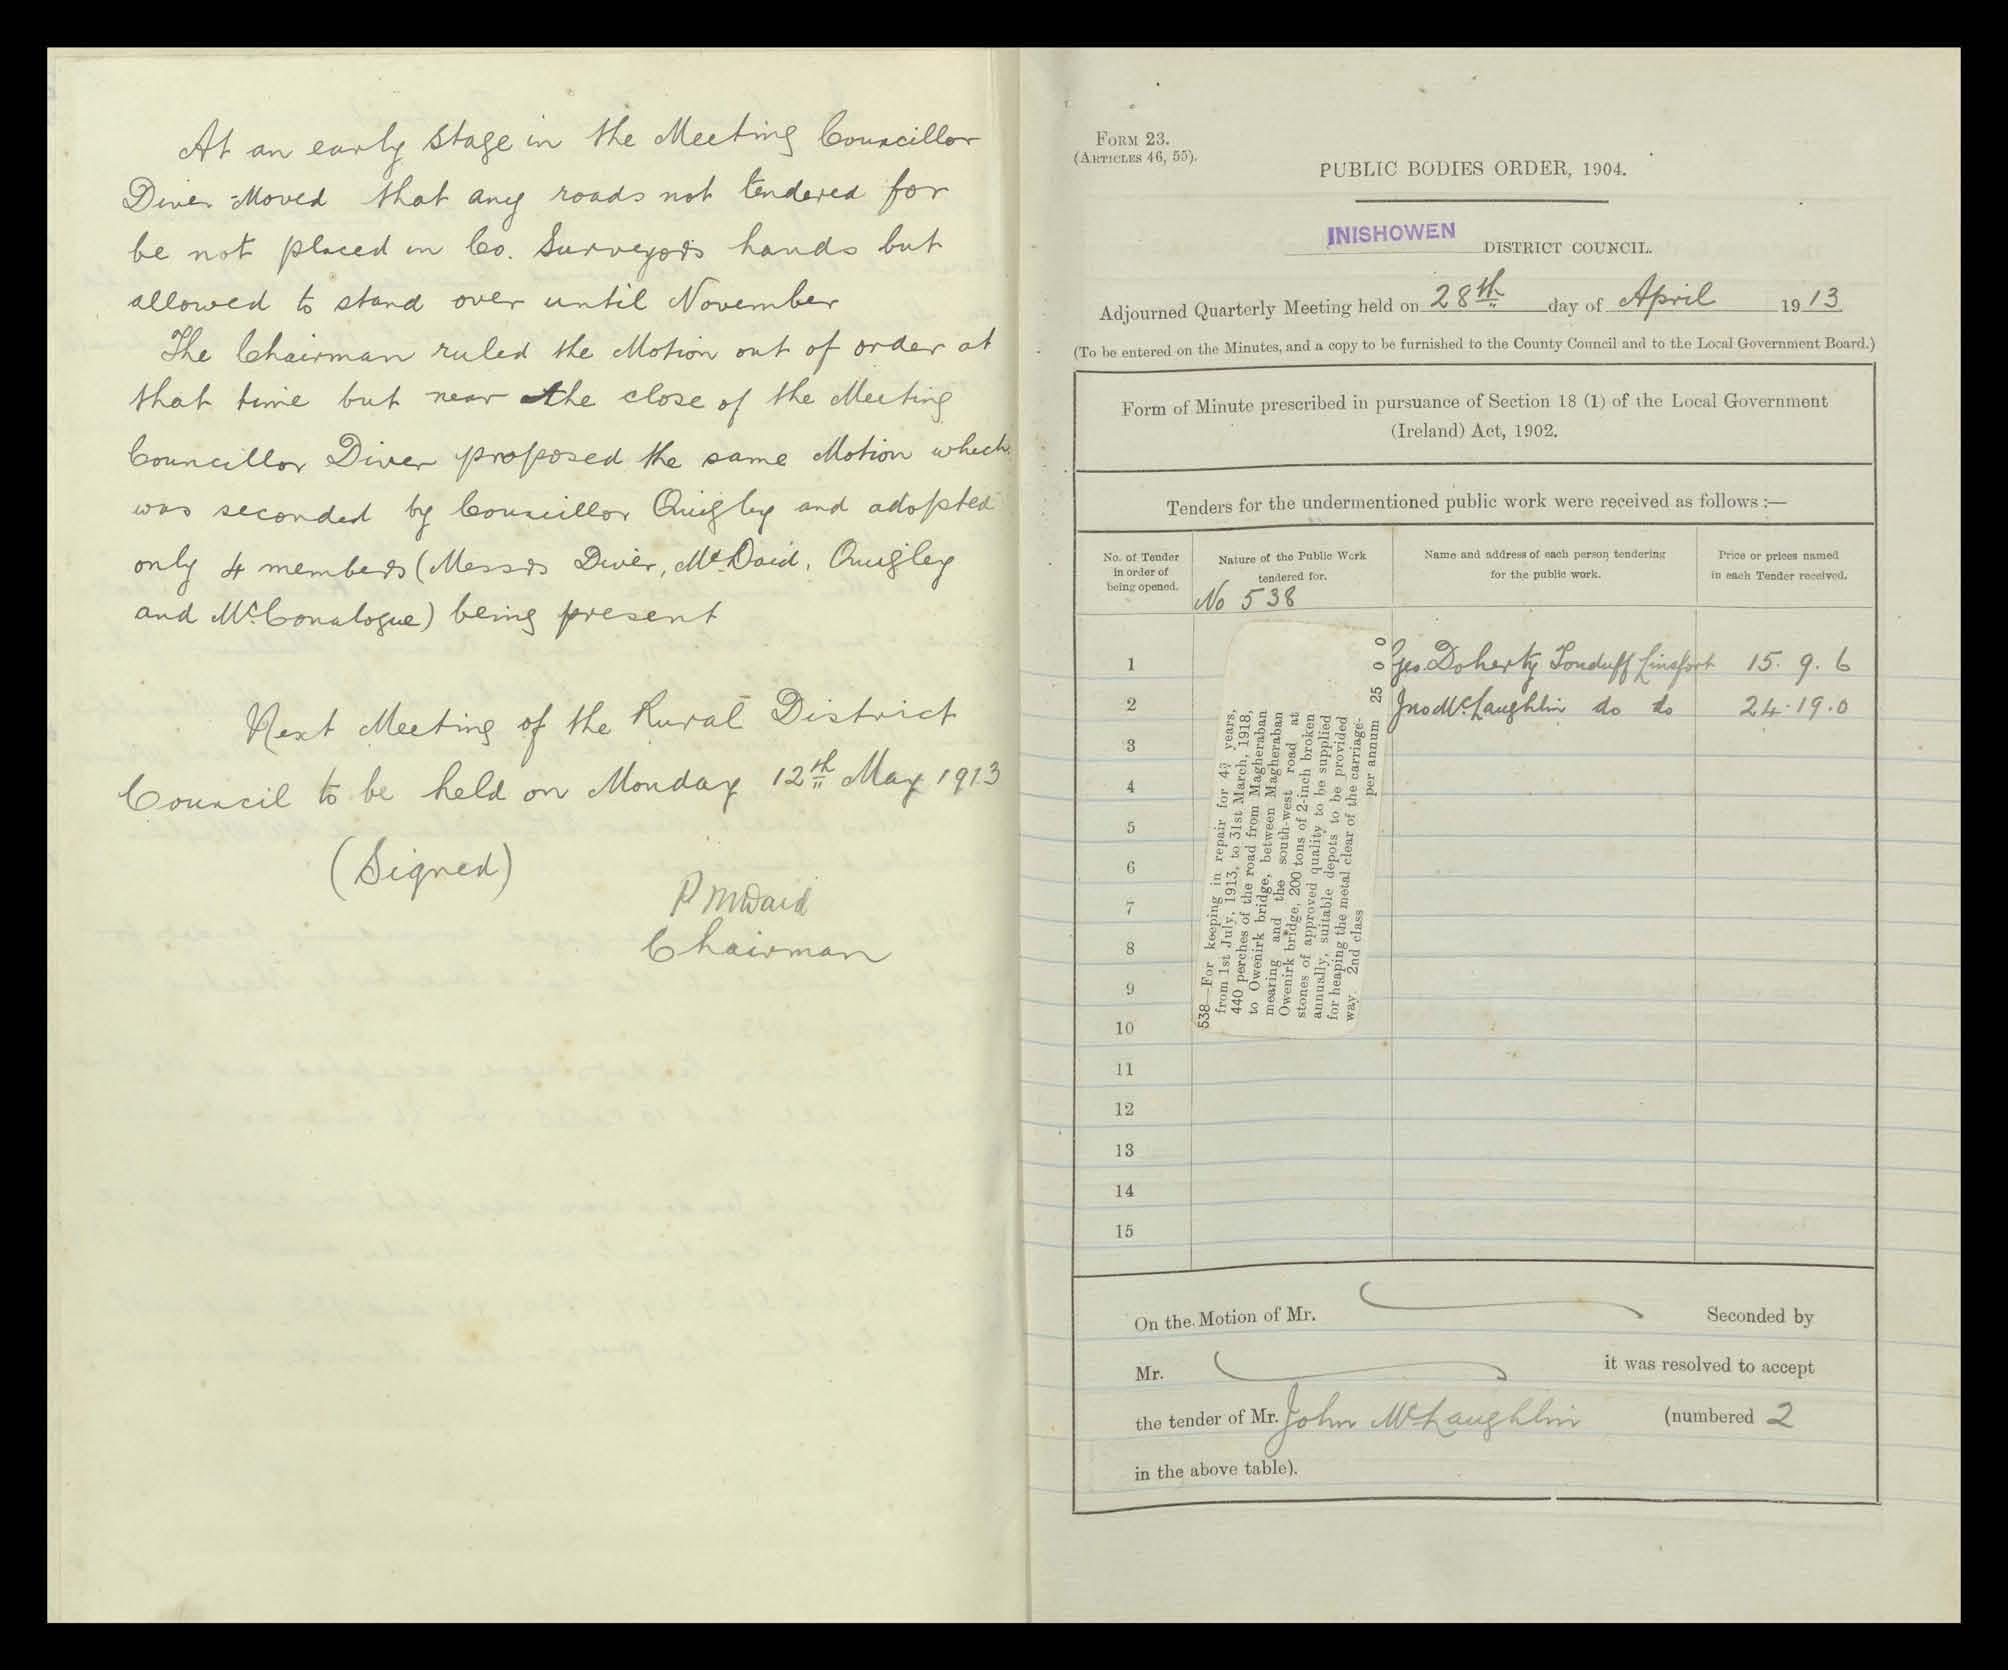 At an early stage in the Meeting Councillor
Diver Moved that any roads not tendered for
be not placed in Co. Surveyors hands but
allowed to stand over until November
The Chairman ruled the Motion out of order at
that time but near the close of the Meeting
Councillor Diver proposed the same Motion which
was seconded by Councillor Quigley and adopted
only 4 members (Messrs Diver, McDaid, Quigley
and McConalogue) being present
Next Meeting of the Rural District
Council to be held on Monday 12th May 1913
(Signed)
P McDaid
Chairman
FORM 23.
(ARTICLES 46, 55).
PUBLIC BODIES ORDER, 1904.
INISHOWEN DISTRICT COUNCIL.
Adjourned Quarterly Meeting held on 28th day of April 1913
(To be entered on the Minutes, and a copy to be furnished to the County Council and to the Local Government Board.)
Form of Minute prescribed in pursuance of Section 18 (1) of the Local Government
(Ireland) Act, 1902.
Tenders for the undermentioned public work were received as follows:—
No. of Tender
in order of
being opened.
Nature of the Public Work
tendered for.
No 538
Name and address of each person tendering
for the public work.
Price or prices named
in each Tender received.
538—For keeping in repair for 4¾ years,
from 1st July, 1913, to 31st March, 1918,
440 perches of the road from Magheraban
to Owenirk bridge, between Magheraban
mearing and the south-west road at
Owenirk bridge, 200 tons of 2-inch broken
stones of approved quality to be supplied
annually, suitable depots to be provided
for heaping the metal clear of the carriage-
way. 2nd class per annum 25 0 0
1 Geo. Doherty Tonduff Linsfort 15. 9. 6
2 Jno McLaughlin do do 24. 19. 0
3
4
5
6
7
8
9
10
11
12
13
14
15
On the Motion of Mr. Seconded by
Mr. it was resolved to accept
the tender of Mr. John McLaughlin (numbered 2
in the above table).